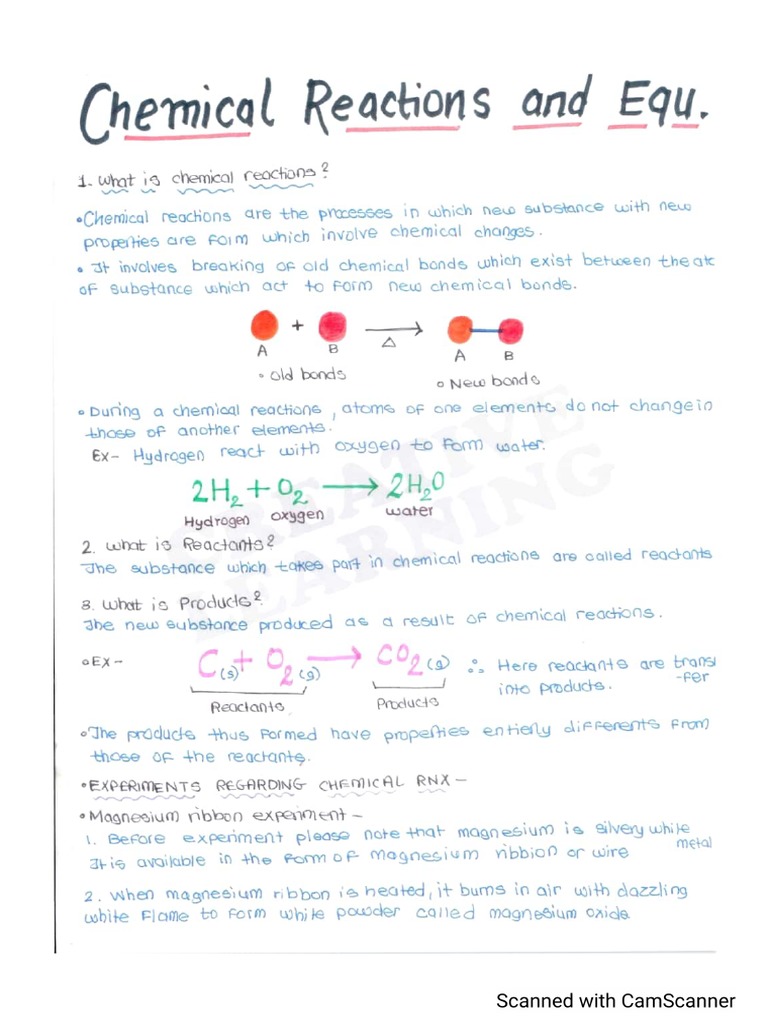 Chemical Reactions and Equ.
1. What is chemical reactions?
•Chemical reactions are the processes in which new substance with new
properties are form which involve chemical changes.
• It involves breaking of old chemical bonds which exist between the at
of substance which act to form new chemical bonds.
+
A B Δ A B
• Old bonds
• New bonds
• During a chemical reactions, atoms of one elements do not change in
those of another elements.
Ex- Hydrogen react with oxygen to form water.
2H2 + O2 → 2H2O
Hydrogen oxygen water
2. What is Reactants?
The substance which takes part in chemical reactions are called reactants
3. What is Products?
The new substance produced as a result of chemical reactions.
•EX- C(s) + O2(g) → CO2(g) ∴ Here reactants are transfer
into products.
Reactants Products
•The products thus formed have properties entierly differents from
those of the reactants.
•EXPERIMENTS REGARDING CHEMICAL RNX-
•Magnesium ribbon experiment-
1. Before experiment please note that magnesium is silvery white
metal
It is available in the form of magnesium ribbion or wire
2. When magnesium ribbon is heated, it burns in air with dazzling
white flame to form white powder called magnesium oxide
CREATIVE
LEARNING
Scanned with CamScanner